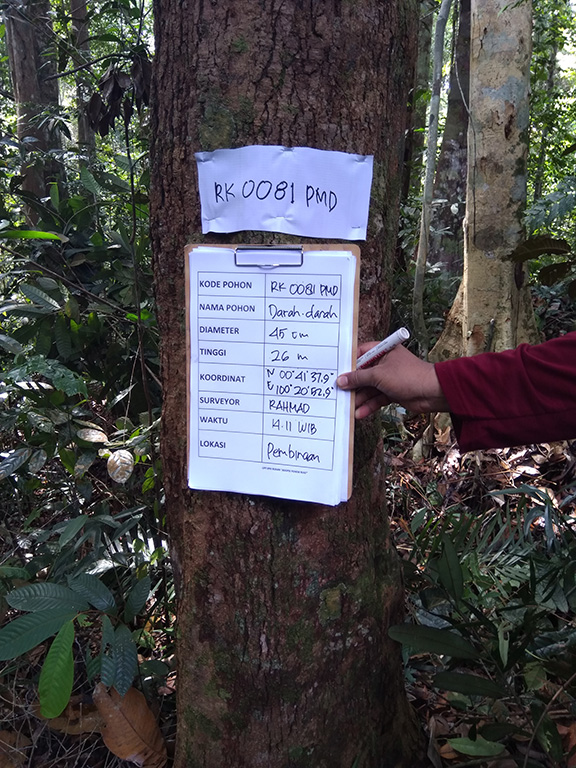 RK 0081 PMD
KODE POHON RK 0081 PMD
NAMA POHON Darah-darah
DIAMETER 45 cm
TINGGI 26 m
KOORDINAT N 00°41'37.9"
E 100°20'52.9"
SURVEYOR RAHMAD
WAKTU 14.11 WIB
LOKASI Pembinaan